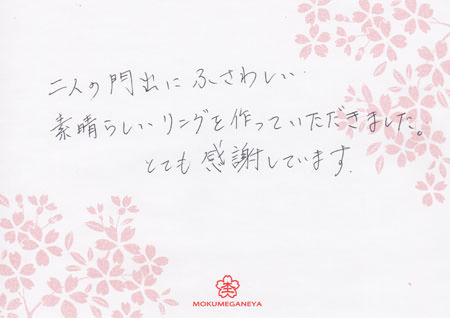 二人の門出にふさわしい
素晴らしいリングを作っていただきました。
とても感謝しています.
MOKUMEGANEYA